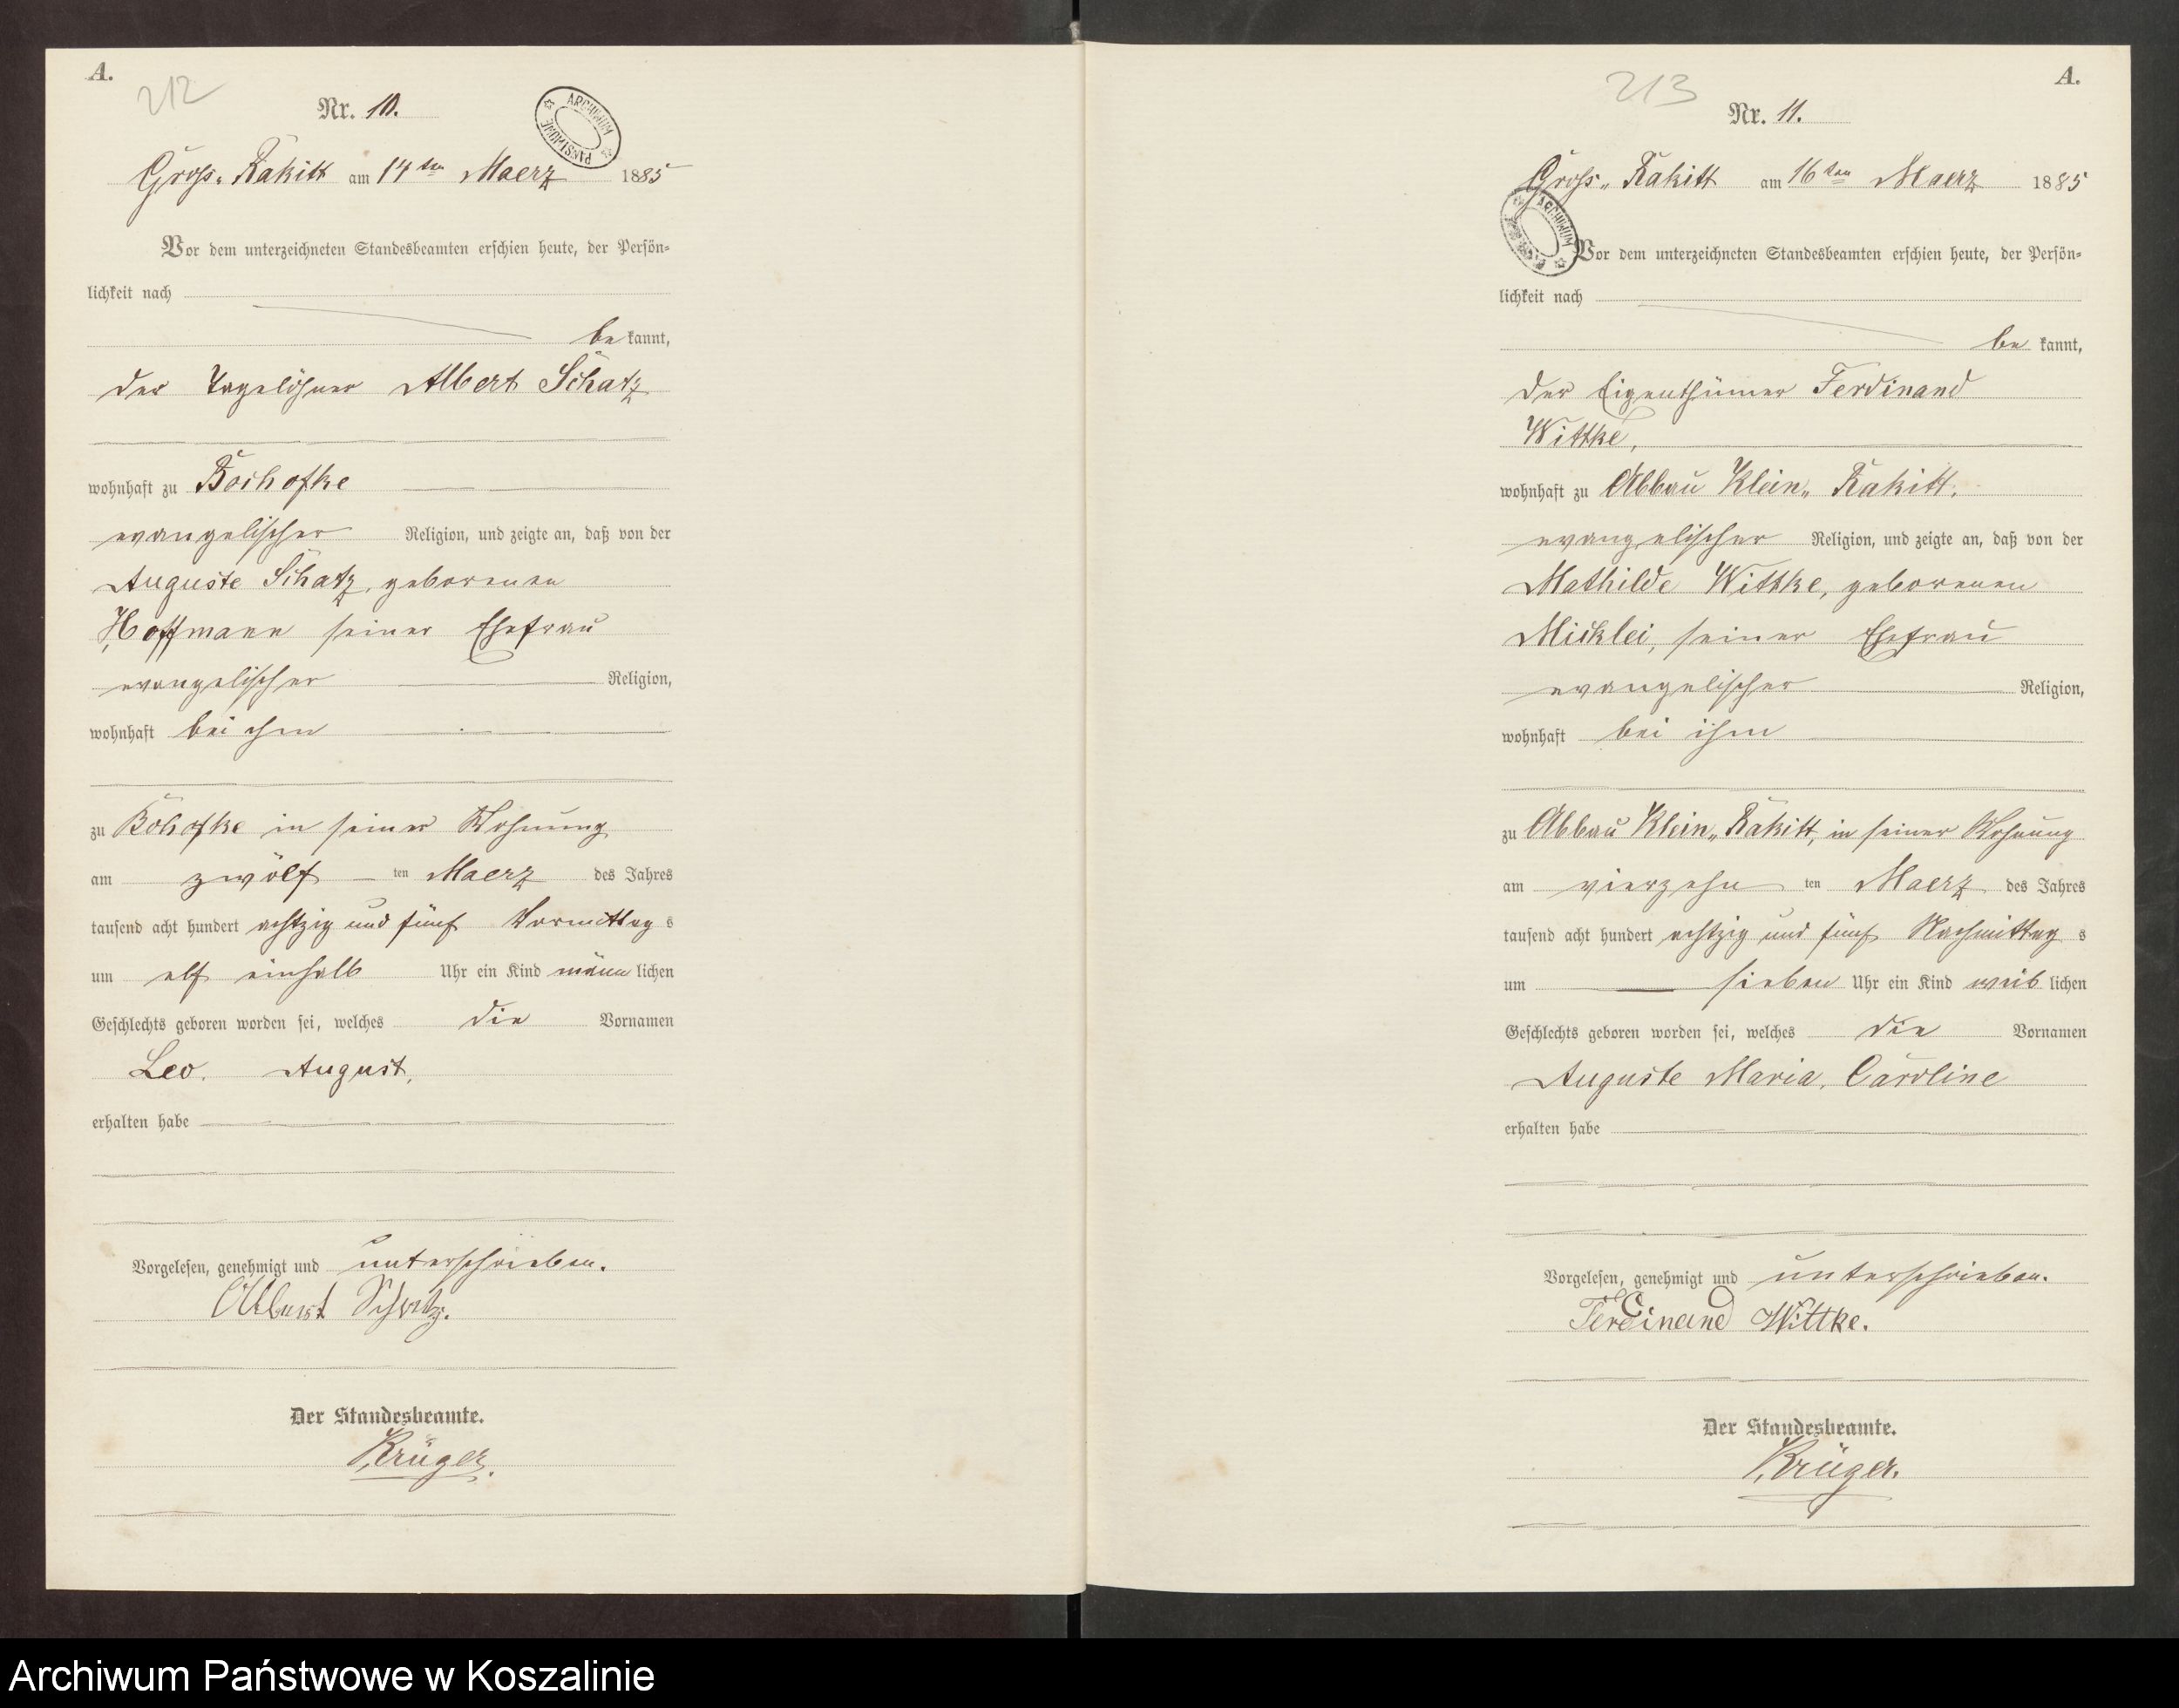 A.
212
Nr. 10.
ARCHIWUM PAŃSTWOWE
Gross-Rakitt am 14ten Maerz 1885
Vor dem unterzeichneten Standesbeamten erschien heute, der Persön-
lichkeit nach
be kannt,
der Tagelöhner Albert Schatz
wohnhaft zu Bochofke
evangelischer Religion, und zeigte an, daß von der
Auguste Schatz, geborenen
Hoffmann seiner Ehefrau
evangelischer Religion,
wohnhaft bei ihm
zu Bohofke in seiner Wohnung
am zwölf ten Maerz des Jahres
tausend acht hundert achtzig und fünf Vormittag s
um elf einhalb Uhr ein Kind männ lichen
Geschlechts geboren worden sei, welches die Vornamen
Leo. August,
erhalten habe
Vorgelesen, genehmigt und unterschrieben.
Albert Schatz.
Der Standesbeamte.
Krüger.
A.
213
Nr. 11.
Gross-Rakitt am 16ten Maerz 1885
ARCHIWUM
Vor dem unterzeichneten Standesbeamten erschien heute, der Persön-
lichkeit nach
be kannt,
der Eigenthümer Ferdinand
Wittke,
wohnhaft zu Abbau Klein-Rakitt.
evangelischer Religion, und zeigte an, daß von der
Mathilde Wittke, geborenen
Micklei, seiner Ehefrau
evangelischer Religion,
wohnhaft bei ihm
zu Abbau Klein-Rakitt, in seiner Wohnung
am vierzehn ten Maerz des Jahres
tausend acht hundert achtzig und fünf Nachmittag s
um sieben Uhr ein Kind weib lichen
Geschlechts geboren worden sei, welches die Vornamen
Auguste Maria, Caroline
erhalten habe
Vorgelesen, genehmigt und unterschrieben.
Ferdinand Wittke.
Der Standesbeamte.
Krüger.
Archiwum Państwowe w Koszalinie